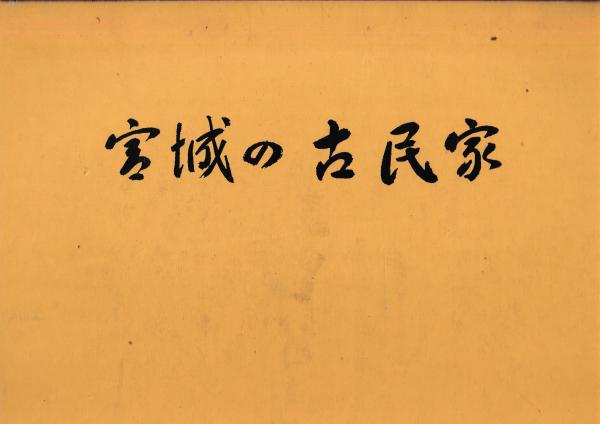 宮城の古民家